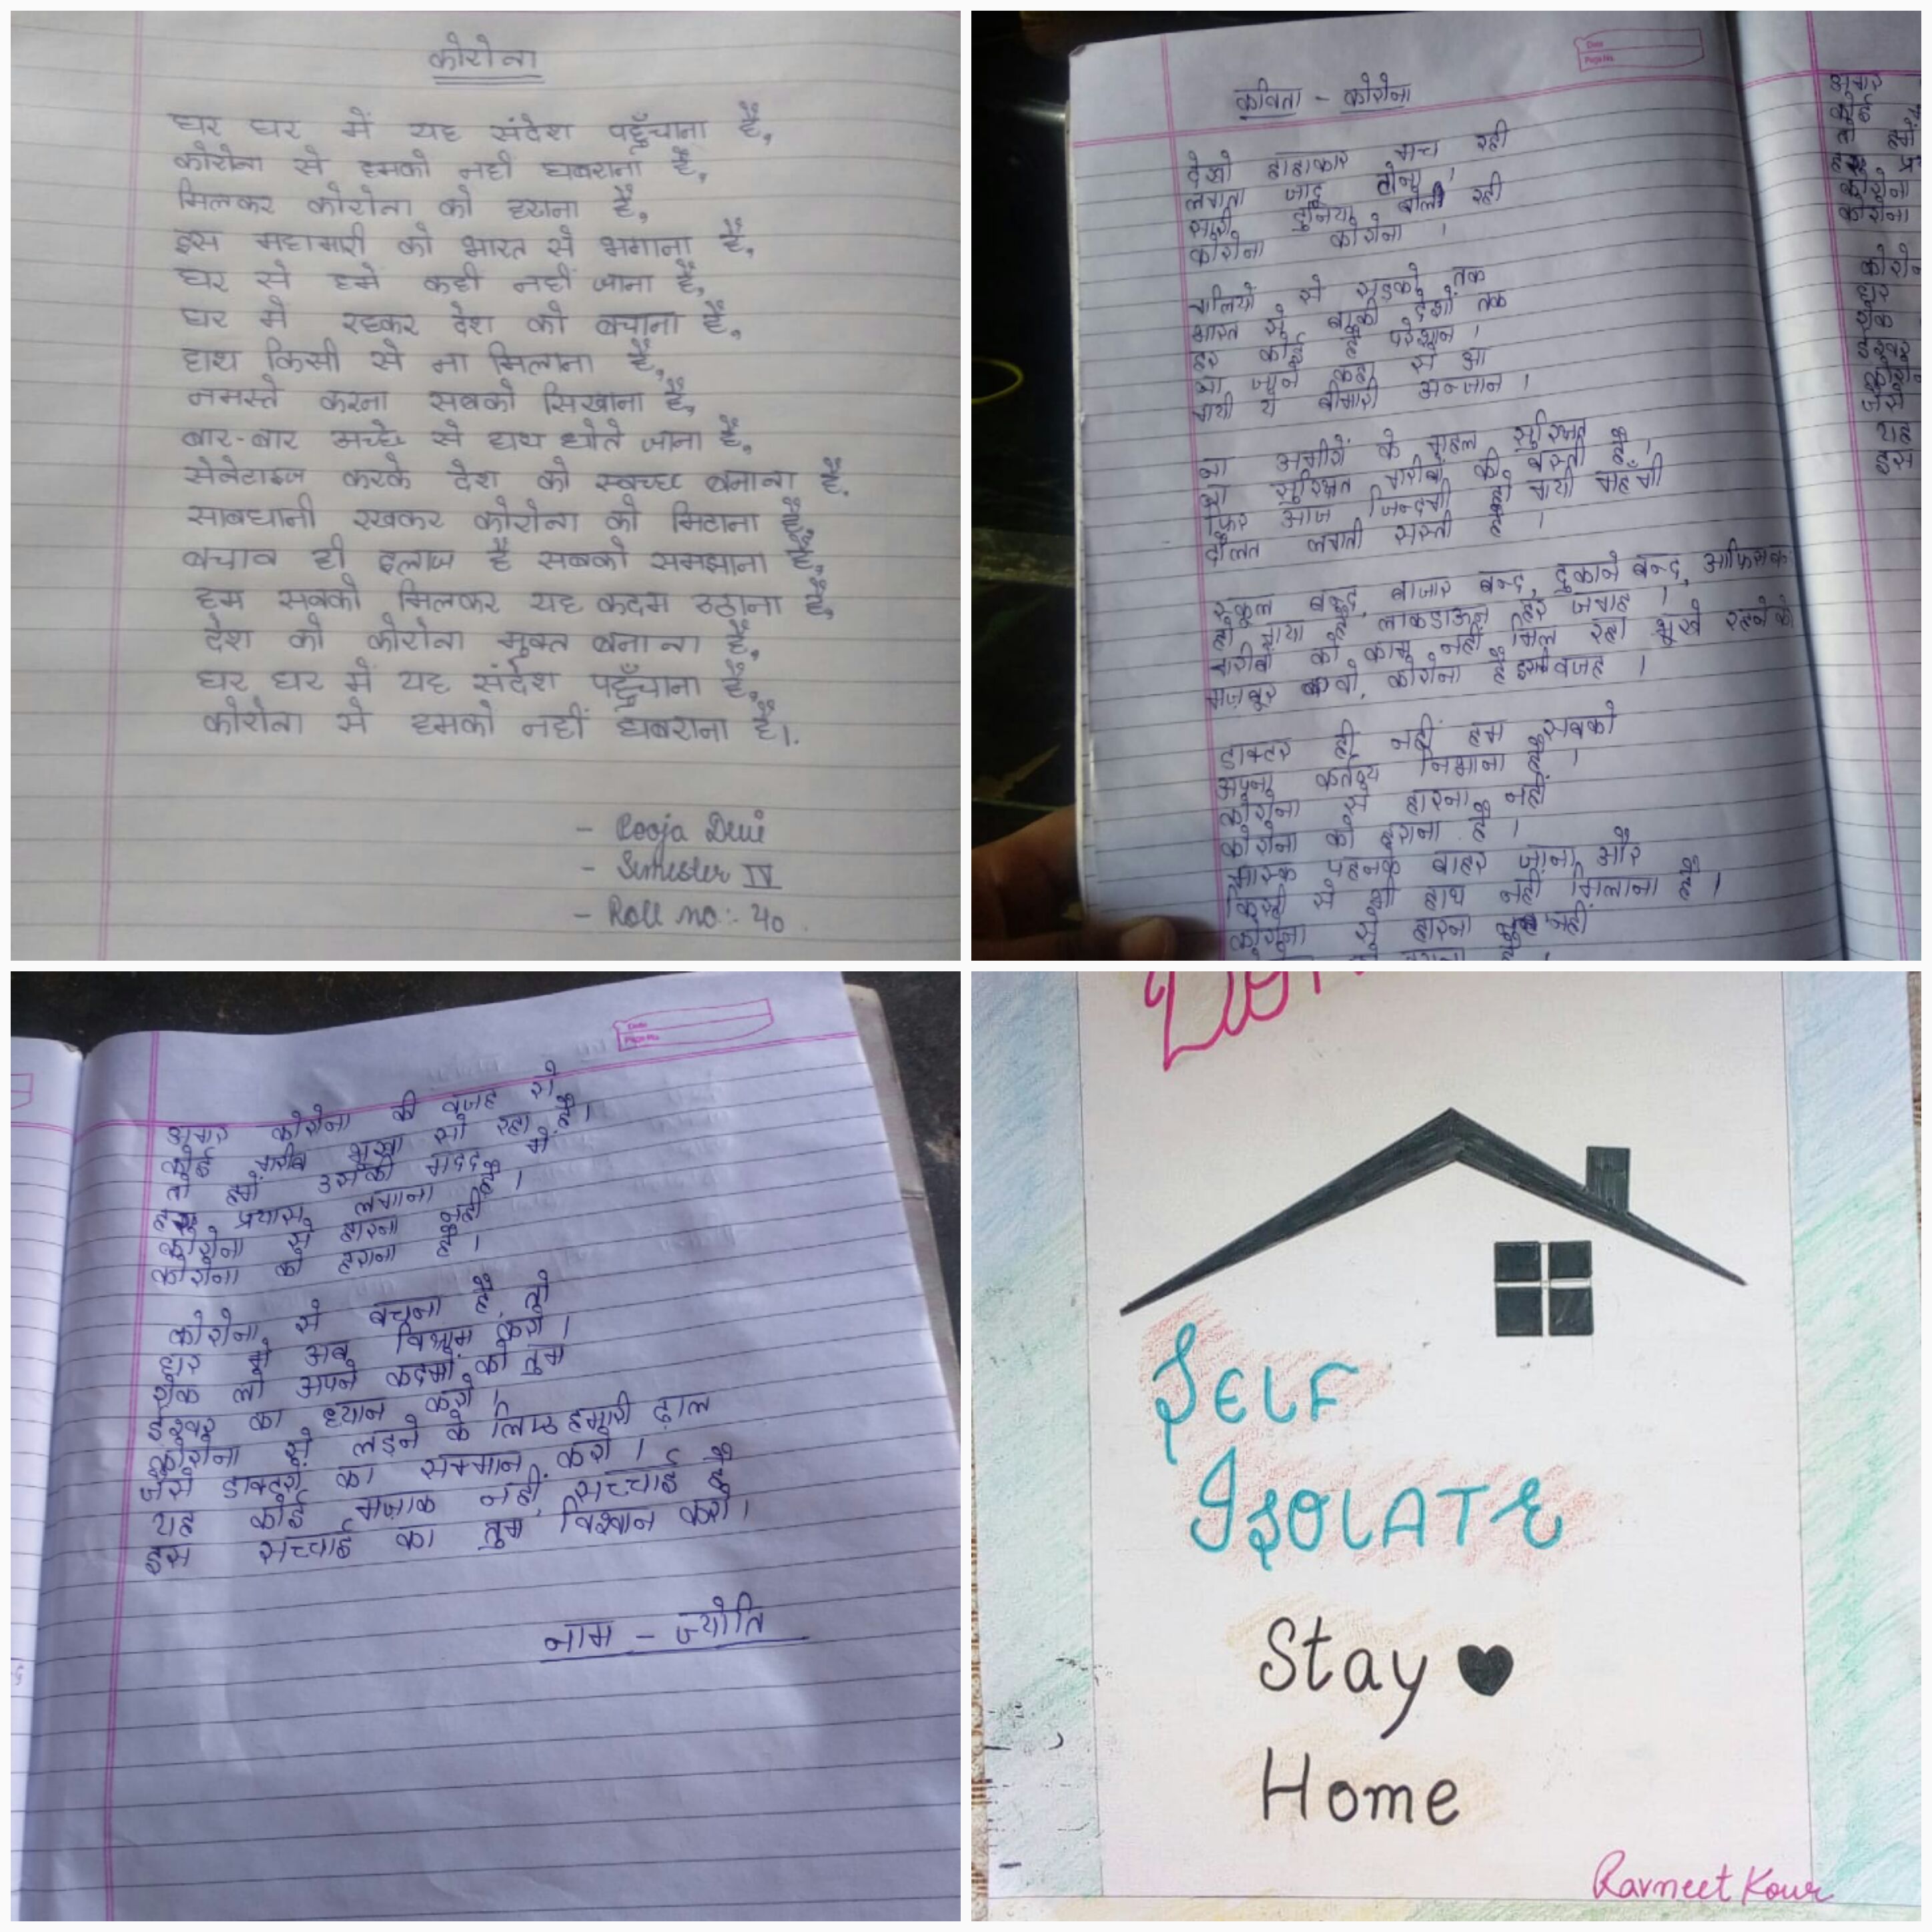 कोरोना
घर घर में यह संदेश पहुँचाना है,
कोरोना से हमको नही घबराना है,
मिलकर कोरोना को हराना है,
इस महामारी को भारत से भगाना है,
घर से हमे कही नहीं जाना है,
घर मे रहकर देश को बचाना है,
हाथ किसी से ना मिलाना है,
नमस्ते करना सबको सिखाना है,
बार-बार अच्छे से हाथ धोते जाना है,
सेनेटाइज करके देश को स्वच्छ बनाना है.
सावधानी रखकर कोरोना को मिटाना है,
बचाव ही इलाज है सबको समझाना है,
हम सबको मिलकर यह कदम उठाना है,
देश को कोरोना मुक्त बनाना है,
घर घर में यह संदेश पहुँचाना है,
कोरोना से हमको नहीं घबराना है।.
- Pooja Devi
- Semester IV
- Roll no:- 40.
कविता - कोरोना
देखो हाहाकार मच रही
लगता जादू टोना।
सारी दुनिया बोल रही
कोरोना कोरोना।
गलियों से सड़को तक
भारत से बाकी देशों तक
हर कोई है परेशान।
ना जाने कहा से आ
गयी ये बीमारी अन्जान।
ना अमीरों के महल सुरक्षित
ना सुरक्षित गरीबो की बस्ती है।
फिर आज जिन्दगी हो गयी महँगी
दौलत लगती सस्ती है।
स्कूल बन्द, बाजार बन्द, दुकाने बन्द, आफिस
हो गया है लाकडाऊन हर जगह।
गरीबो को काम नहीं मिल रहा भूखे रहने को
मजबूर वो, कोरोना है इसकी वजह।
डाक्टर ही नहीं हम सबको
अपना कर्तव्य निभाना है।
कोरोना से हारना नहीं
कोरोना को हराना है।
मास्क पहनके बाहर जाना और
किसी से भी हाथ नहीं मिलाना है।
कोरोना से हारना नहीं
अगर कोरोना की वजह से
कोई गरीब भूखा सो रहा है।
तो हमें उसकी मदद में
हर प्रयास लगाना है।
कोरोना से हारना नहीं
कोरोना को हराना है।
कोरोना से बचना है तो
घर मे अब विश्राम करो।
रोक लो अपने कदमों को तुम
ईश्वर का ध्यान करो।
कोरोना से लड़ने के लिए हमारी ढ़ाल
जैसे डाक्टरों का सम्मान करो।
यह कोई मज़ाक नहीं सच्चाई है
इस सच्चाई का तुम विश्वान करो।
नाम - ज्योति
SELF
ISOLATE
Stay
Home
Ravneet Kour